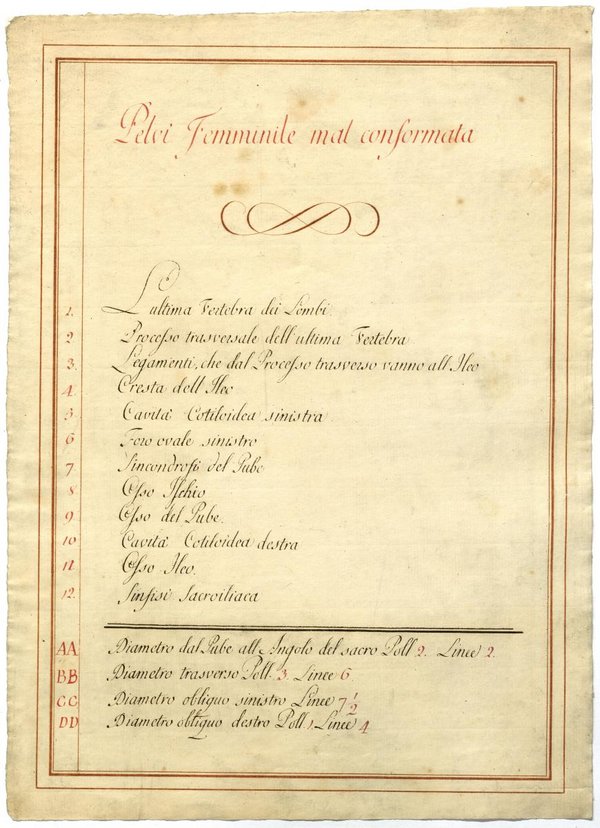 Pelvi Femminile mal conformata
1. L'ultima Vertebra dei Lombi
2 Processo trasversale dell'ultima Vertebra
3. Legamenti, che dal Processo trasverso vanno all'Ileo
4. Cresta dell'Ileo
5. Cavità Cotiloidea sinistra
6 Foro ovale sinistro
7 Sincondrosi del Pube
8 Osso Ischio
9 Osso del Pube.
10 Cavità Cotiloidea destra
11 Osso Ileo.
12. Sinfisi Sacroiliaca
AA Diametro dal Pube all'Angolo del sacro Poll 2. Linee 2.
BB Diametro trasverso Poll. 3. Linee 6.
CC Diametro obliquo sinistro Linee 7 1/2
DD Diametro obliquo destro Poll 1 Linee 4